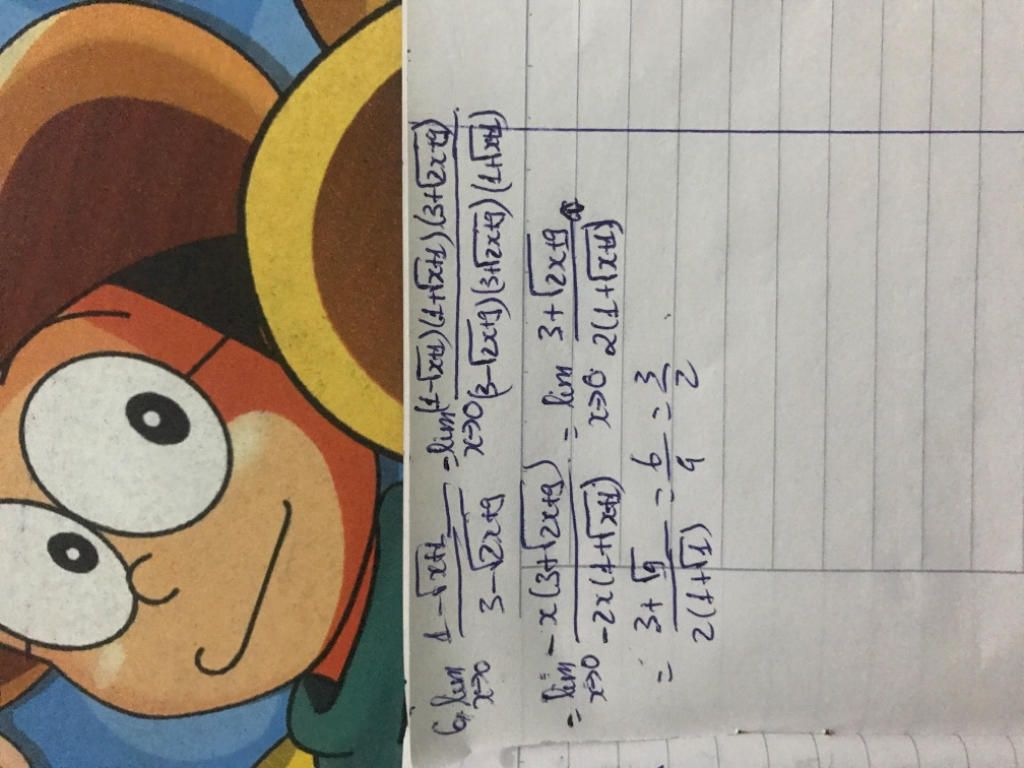 6, lim x→0 (1-√(x+1))/(3-√(2x+9)) = lim x→0 ((1-√(x+1))(1+√(x+1))(3+√(2x+9)))/((3-√(2x+9))(3+√(2x+9))(1+√(x+1)))
= lim x→0 (-x(3+√(2x+9)))/(-2x(1+√(x+1))) = lim x→0 (3+√(2x+9))/(2(1+√(x+1)))
= (3+√9)/(2(1+√1)) = 6/4 = 3/2